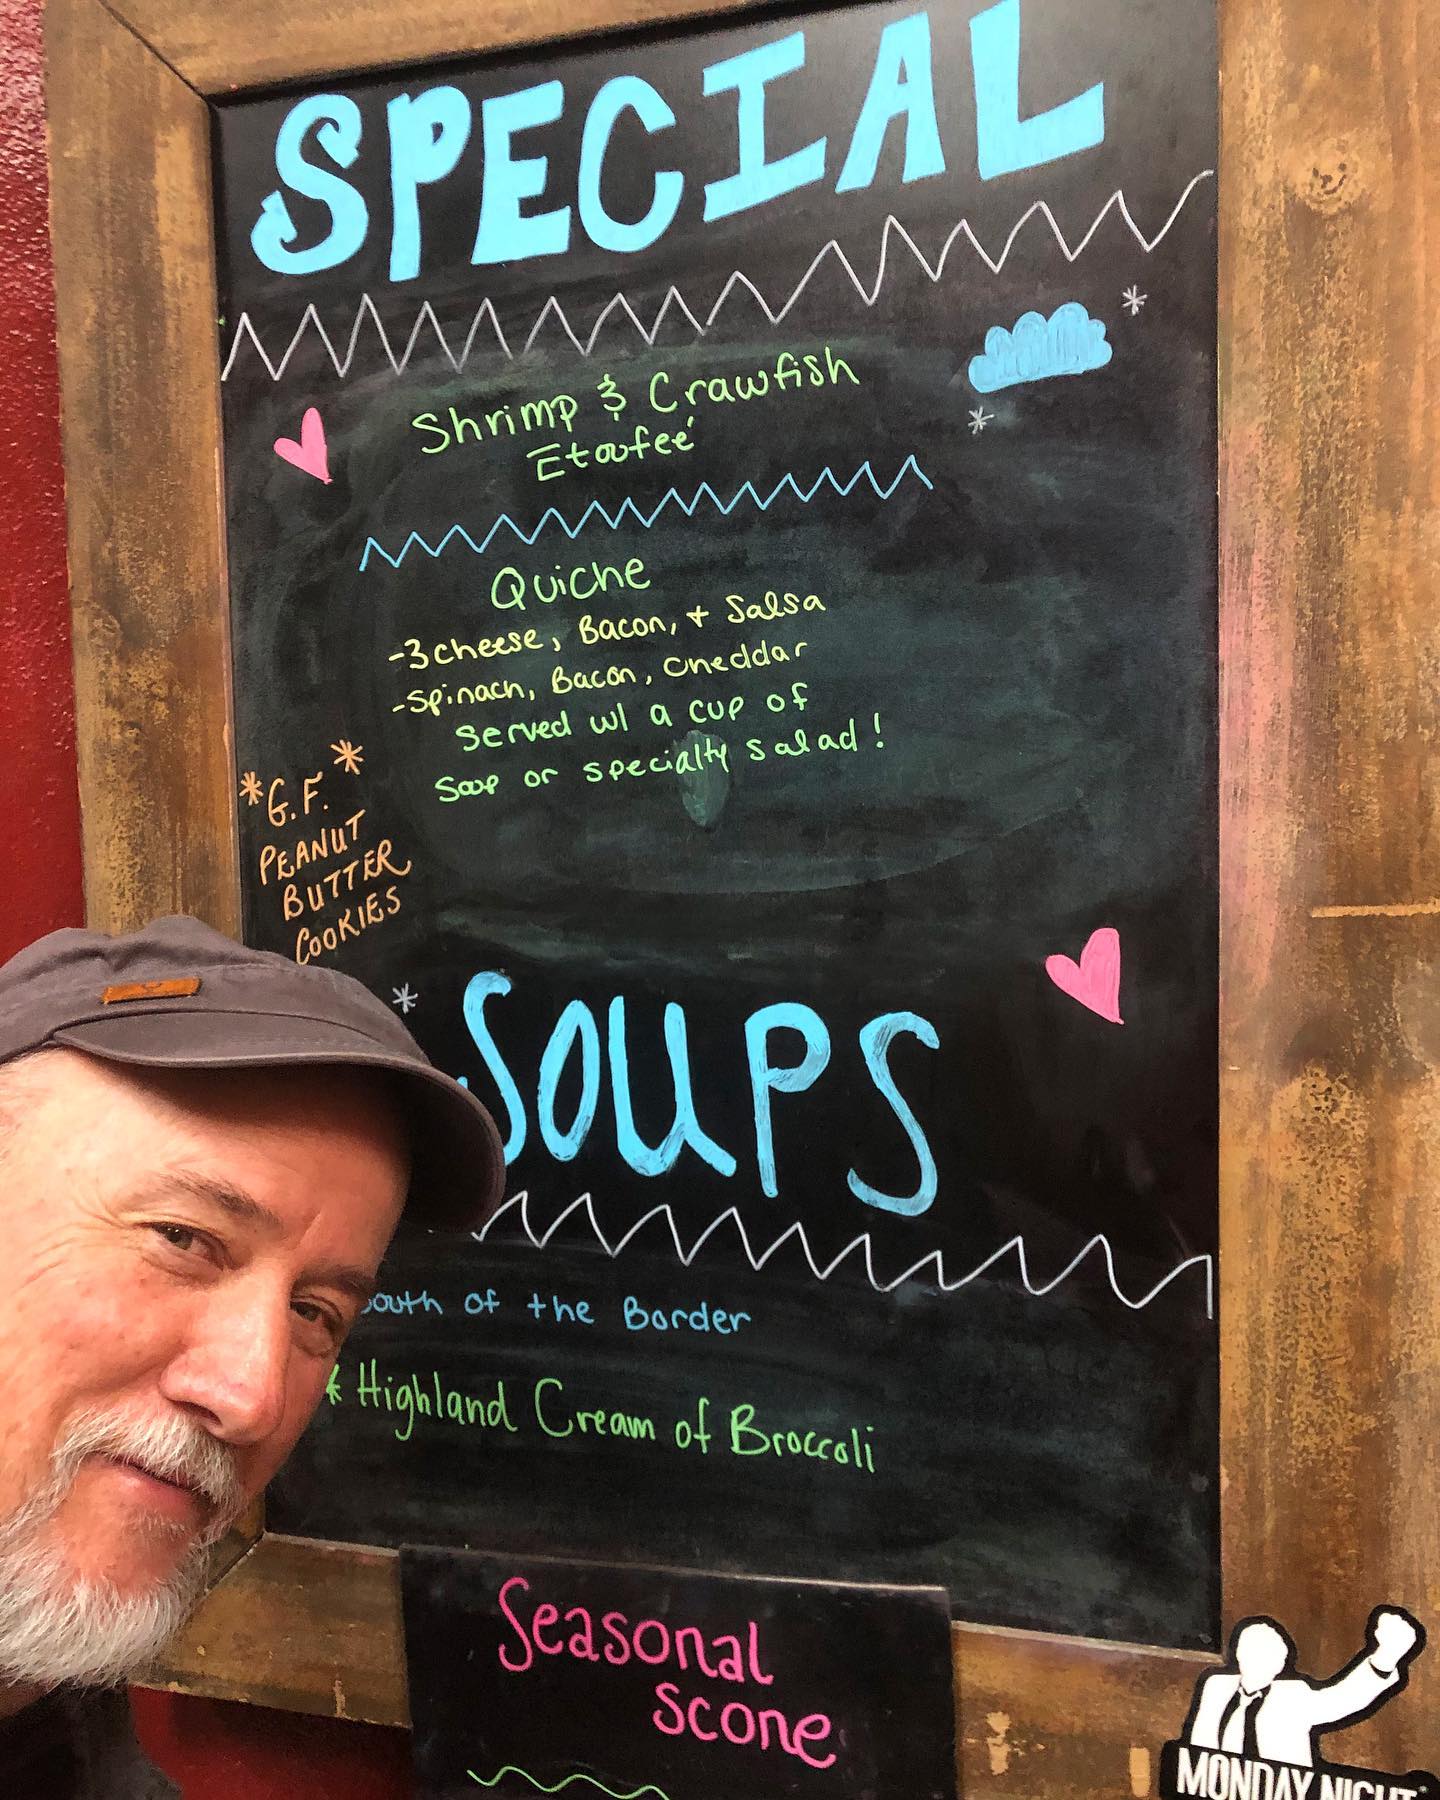 SPECIAL
Shrimp & Crawfish
Etoufeé
Quiche
-3 cheese, Bacon, + Salsa
-Spinach, Bacon, Cheddar
Served w/ a cup of
Soup or specialty salad!
*G.F.*
PEANUT
BUTTER
COOKIES
* SOUPS
South of the Border
* Highland Cream of Broccoli
Seasonal
Scone
MONDAY NIGHT